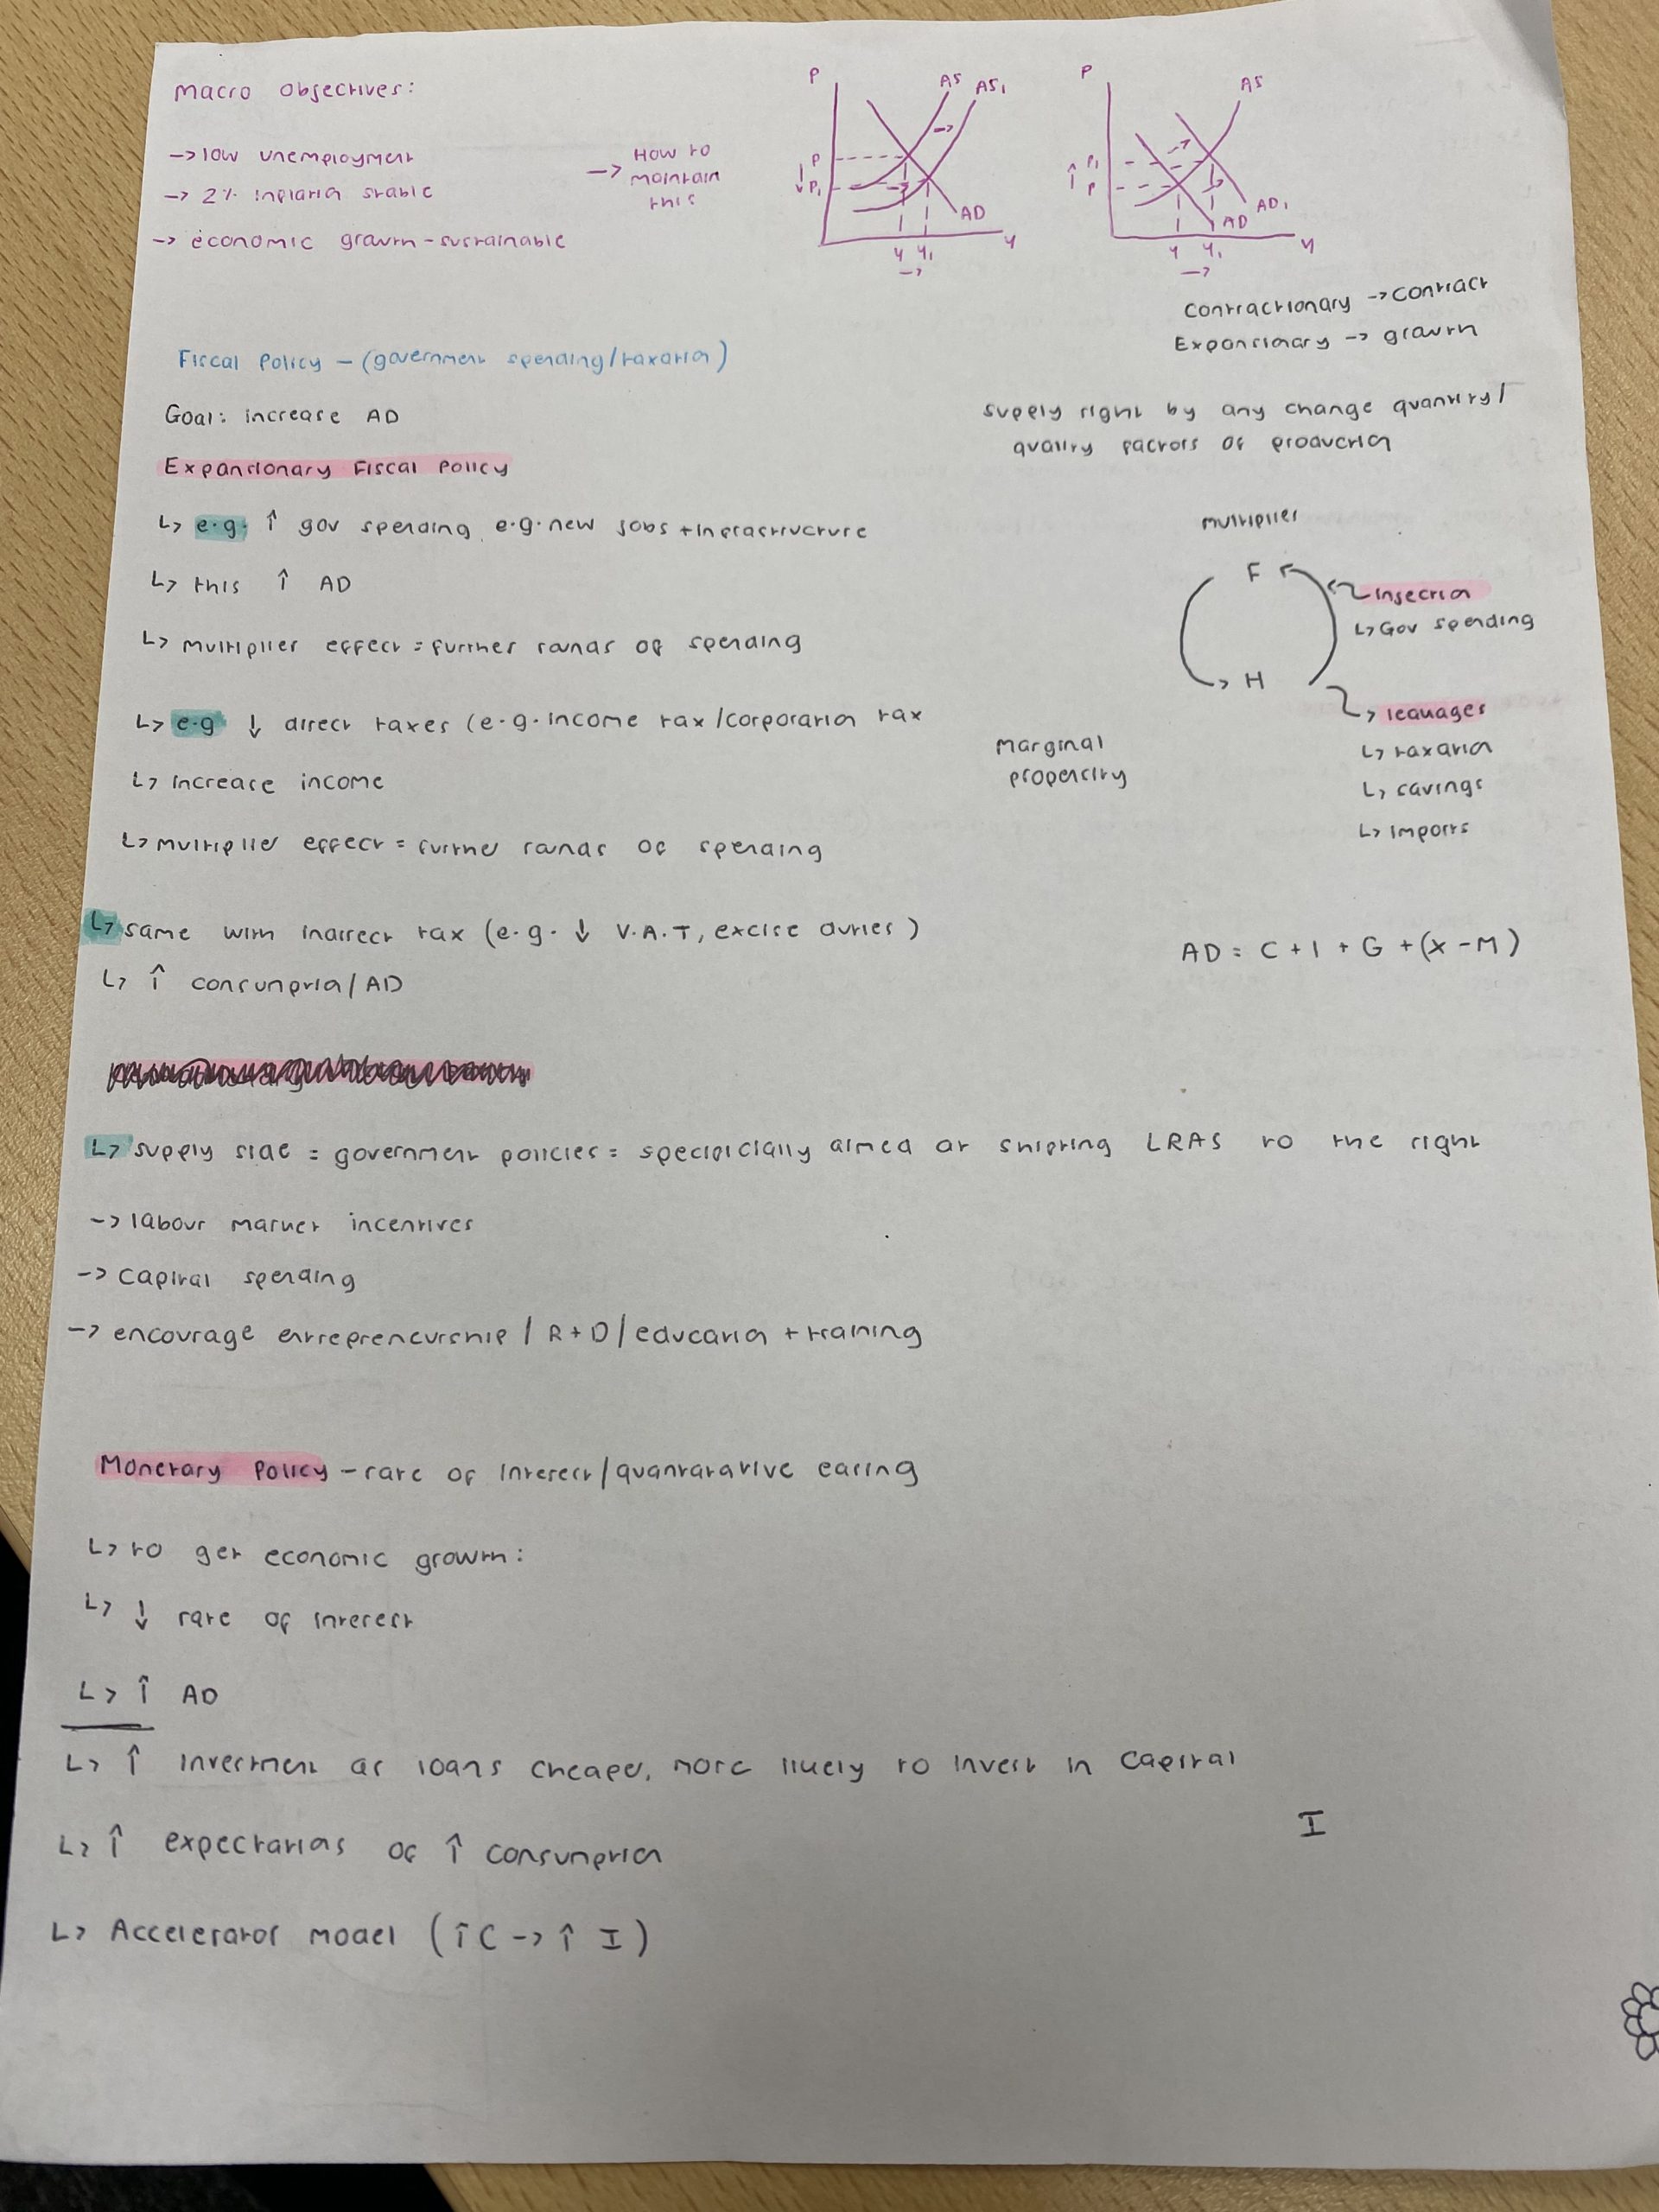 Macro objectives:
-> low unemployment
-> 2% inflation stable
-> economic growth - sustainable
-> How to
maintain
this
P
AS
AS1
P
↓ P1
AD
Y Y1
->
Y
P
AS
↑ P1
P
AD1
AD
Y Y1
->
Y
Contractionary -> contract
Expansionary -> growth
Fiscal Policy - (government spending/taxation)
Goal: increase AD
supply right by any change quantity/
quality factors of production
Expansionary Fiscal Policy
↳ e.g. ↑ gov spending e.g. new jobs + infrastructure
↳ this ↑ AD
↳ multiplier effect = further rounds of spending
multiplier
F
H
injection
↳ Gov spending
leakages
↳ taxation
↳ savings
↳ imports
↳ e.g ↓ direct taxes (e.g. income tax/corporation tax
↳ increase income
↳ multiplier effect = further rounds of spending
marginal
propencity
↳ same with indirect tax (e.g. ↓ V.A.T, excise duties)
↳ ↑ consumption/AD
AD = C + I + G + (X - M)
↳ supply side = government policies = specificially aimed at shifting LRAS to the right
-> labour market incentives
-> capital spending
-> encourage entrepreneurship / R+D / education + training
Monetary Policy - rate of interest/quantatative easing
↳ to get economic growth:
↳ ↓ rate of interest
↳ ↑ AD
↳ ↑ investment as loans cheaper, more likely to invest in capital
I
↳ ↑ expectations of ↑ consumption
↳ Accelerator model (↑C -> ↑ I)